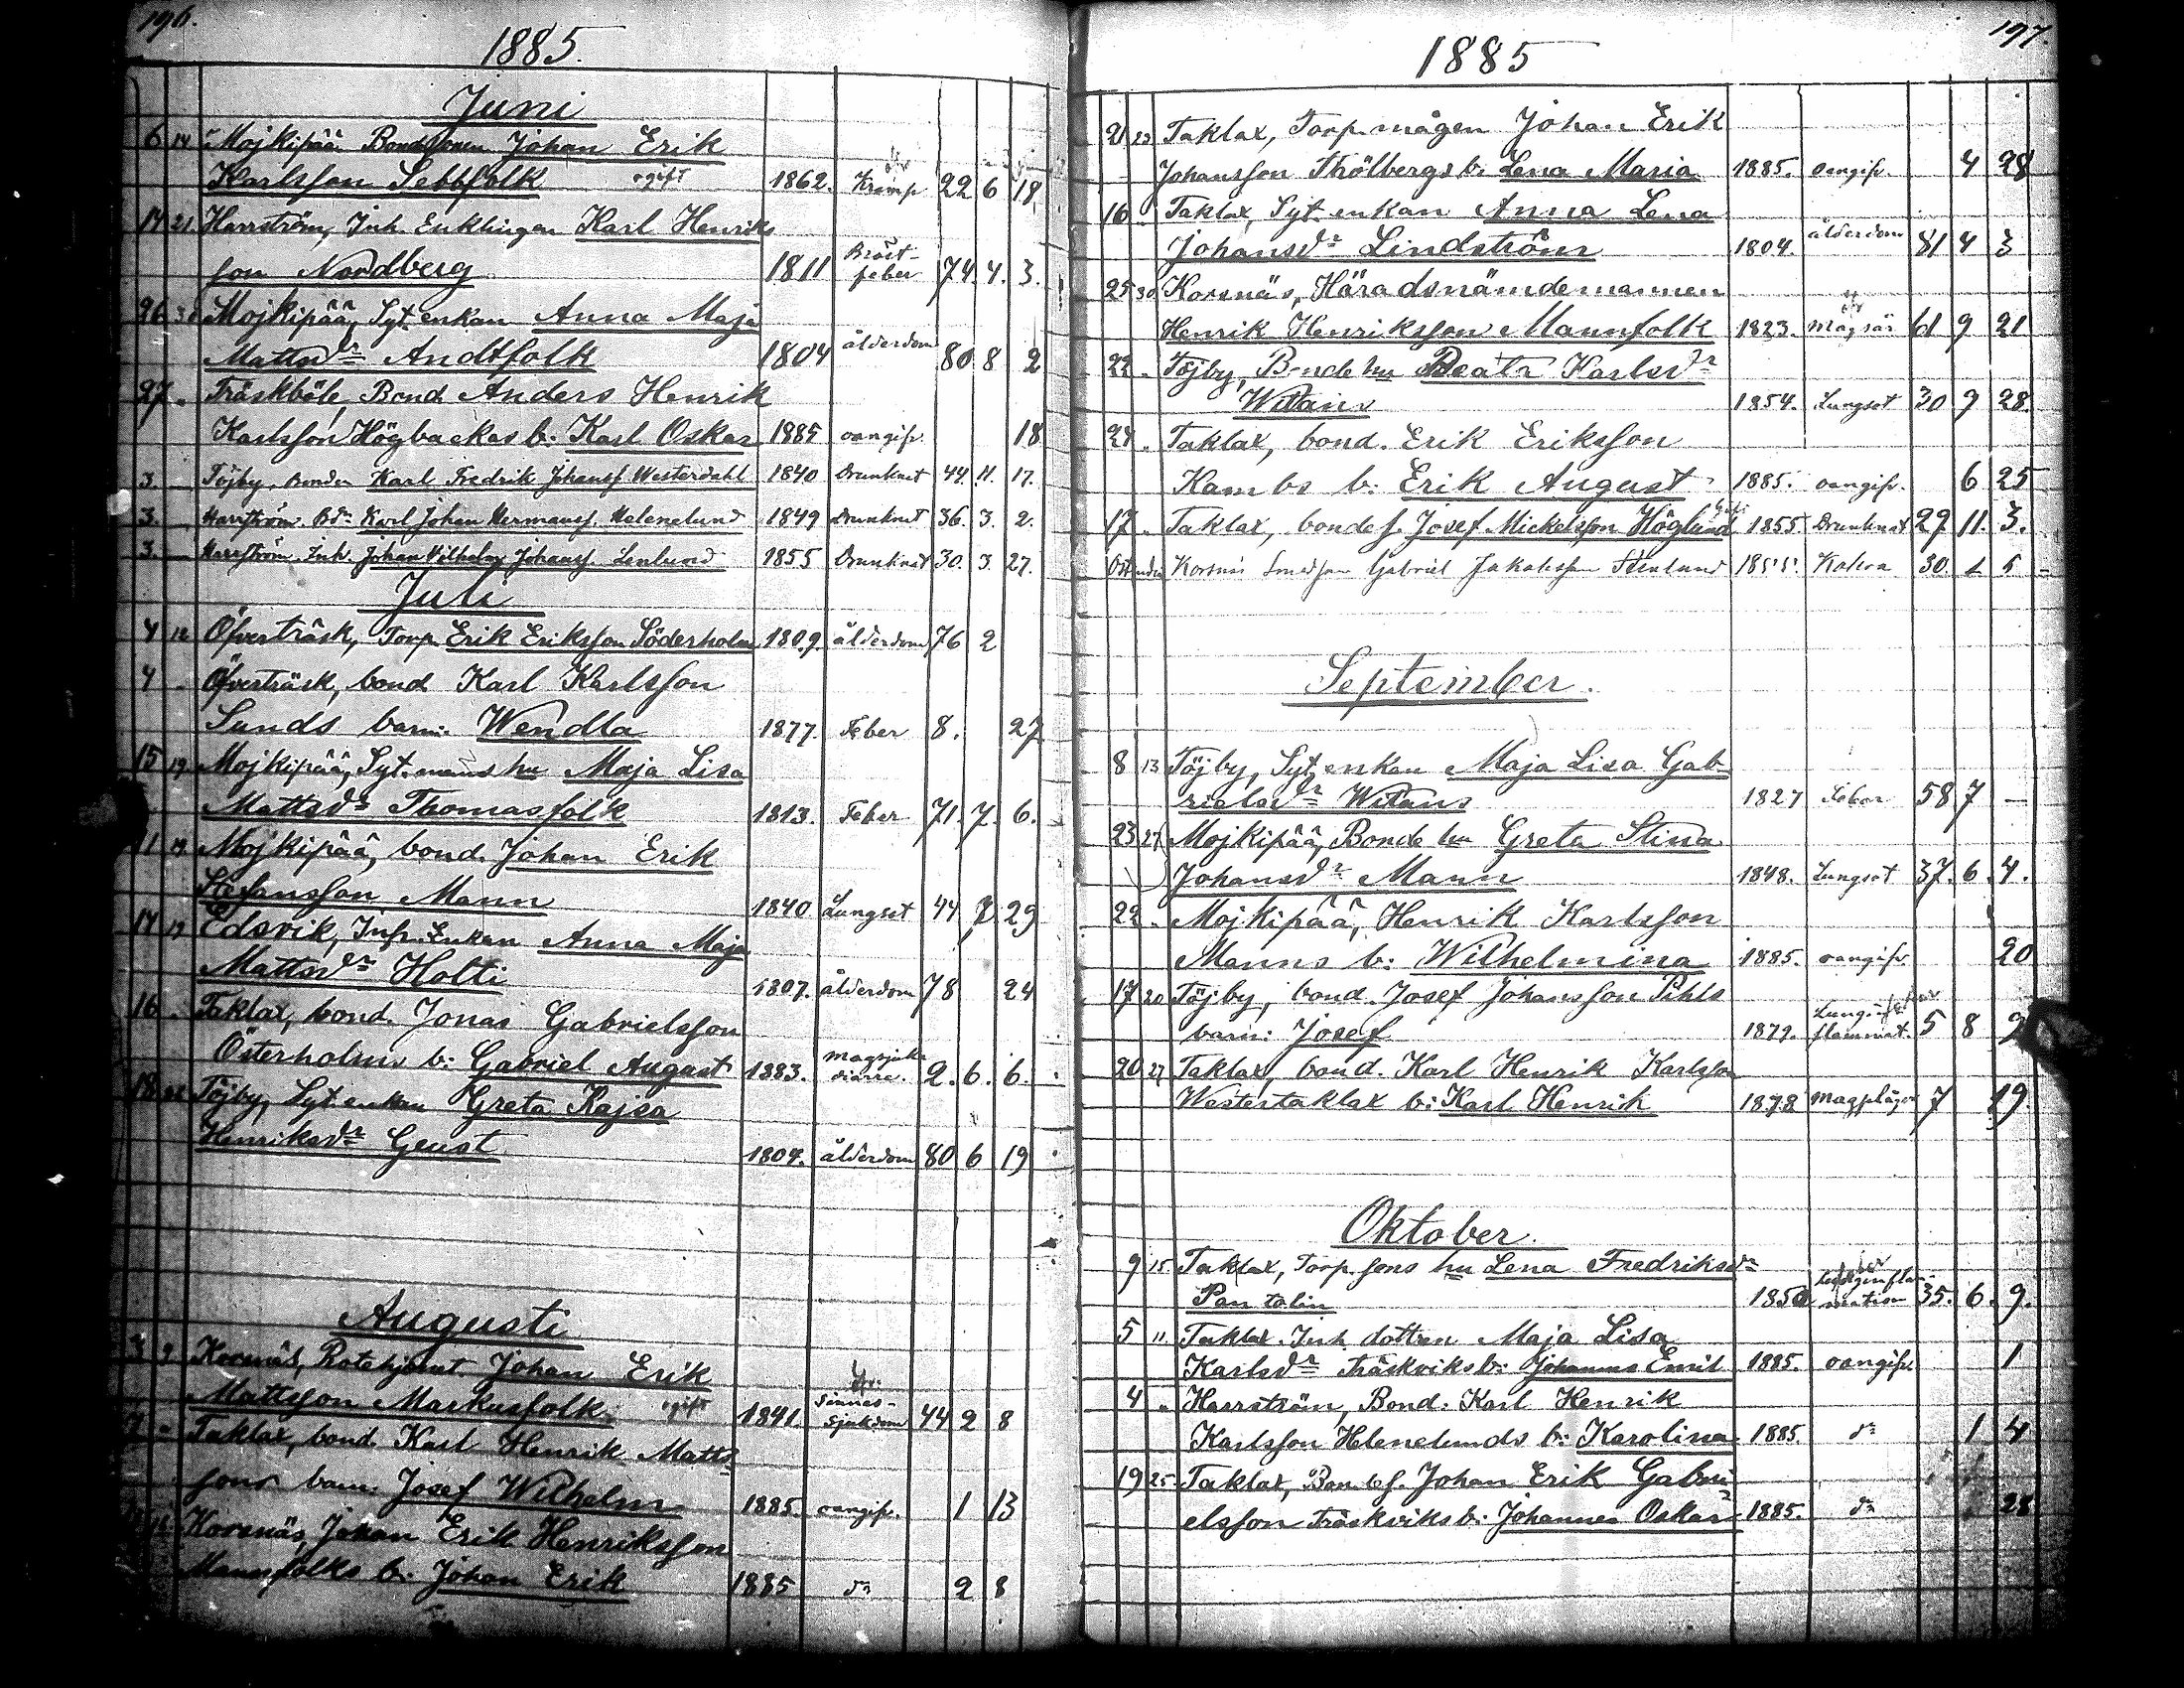 196.
1885.
Juni
6 14 Mojkipää Bondsonen Johan Erik
Karlsson Sebbfolk ogift 1862. Kramp 22 6 18
14 21 Harrström, Inh. Enklingen Karl Henriks
son Nordberg 1811 Bröst-
feber 74. 4. 3.
26 Mojkipää, Syt. enkan Anna Maja
Mattsdr Andtfolk 1804 ålderdom 80 8 2
27 " Träskböle, Bond Anders Henrik
Karlsson Högbackas b: Karl Oskar 1885 oangifv. 18
3. Töjby, Bonden Karl Fredrik Johanss Westerdahl 1840 Drunknat 44. 11. 17.
3. Harrström. Bdn Karl Johan Hermanss. Helenelund 1849 Drunknat 36. 3. 2.
3. Harrström Inh. Johan Vilhelm Johanss. Lenlund 1855 Drunknat 30. 3. 27.
Juli
4 12 Öfverträsk, Torp. Erik Eriksson Söderholm 1809. ålderdom 76 2
4 " Öfverträsk, bond Karl Karlsson
Sunds barn: Wendla 1877. Feber 8. 27
15 19 Mojkipää, Syt. mans hu Maja Lisa
Mattsdr Thomasfolk 1813. Feber 71. 7. 6.
11 19 Mojkipää, bond. Johan Erik
Stefansson Mann 1840 Lungsot 44 7 29
14 19 Edsvik, Inh. Enkan Anna Maja
Mattsdr Holti 1807. ålderdom 78 24
16 " Taklax, bond. Jonas Gabrielsson
Österholms b: Gabriel August 1883. Magsjuka
diarre. 2. 6. 6.
18 26 Töjby, Syt enkan Greta Kajsa
Henriksdr Geust 1804. ålderdom 80 6 19
Augusti
3 9 Korsnäs, Rotehjonet Johan Erik
Mattsson Markusfolk ogift 1841. Sinnes-
sjukdom 44 2 8
" Taklax, bond. Karl Henrik Matts-
sons barn: Josef Wilhelm 1885. oangifv. 1 13
16 Korsnäs, Johan Erik Henriksson
Mannfolks b: Johan Erik 1885 do 2 8
197.
1885
2 23 Taklax, Torp. mågen Johan Erik
Johansson Thölbergs b: Lena Maria 1885. oangifv. 4 28
16 " Taklax, Syt. enkan Anna Lena
Johansdr Lindström 1804. ålderdom 81 4 3
25 30 Korsnäs, Häradsnämdemannen
Henrik Henriksson Mannfolk 1823. Magsår 61 9 21
22 " Töjby, Bonde hu Beata Karlsdr
Witains 1854. Lungsot 30 9 28
24 " Taklax, bond. Erik Eriksson
Kambs b: Erik August 1885. oangifv. 6 25
17 " Taklax, bondes. Josef Mickelsson Höglund Gift 1855 Drunknat 29 11. 3.
Korsnäs Smedsson Gabriel Jakobsson Stenlund 1855. Kolera 30. 1 5
September.
8 13 Töjby, Syt. enkan Maja Lisa Gab-
rielsdr Witans 1827 Feber 58 7 —
23 27 Mojkipää, Bonde hu Greta Stina
Johansdr Mann 1848. Lungsot 37. 6. 4.
22 " Mojkipää, Henrik Karlsson
Manns b: Wilhelmina 1885. oangifv. 20
17 20 Töjby, bond. Josef Johansson Pihls
barn: Josef 1879. Lungin-
flammat. 5 8 2
20 27 Taklax, bond. Karl Henrik Karlsson
Westertaklax b: Karl Henrik 1878 Magplågor 7 19.
Oktober.
9 15 Taklax, Torp. sons hu Lena Fredriksdr
Pantolin 1850 Lunginfla-
mation 35. 6. 9.
5 11 Taklax. Inh. dottren Maja Lisa
Karlsdr Träskviks b: Johannes Emil 1885. oangifv. 1
4 " Harrström, Bond: Karl Henrik
Karlsson Helenelunds b: Karolina 1885. do 1 4
19 25 Taklax, Bondes. Johan Erik Gabri-
elsson Träskviks b: Johannes Oskar 1885. do 28